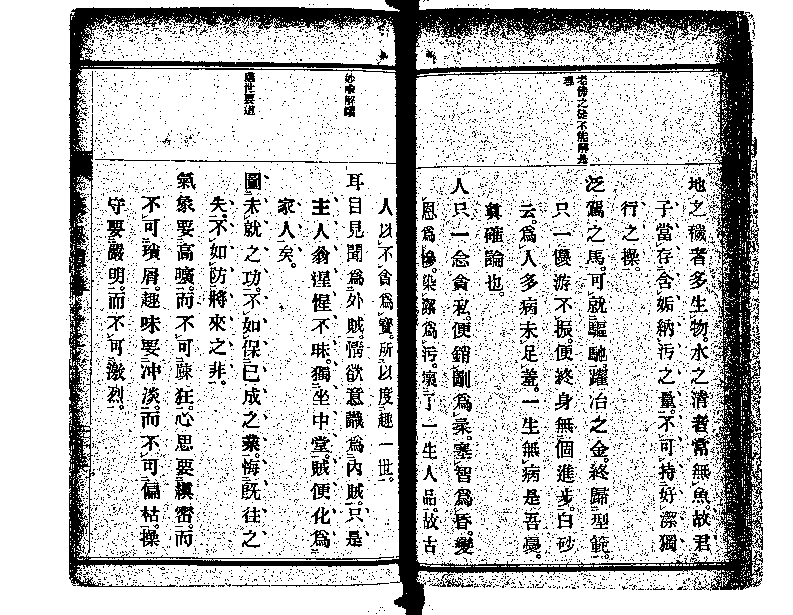 老佛之徒不能解是
地之穢者多生物。水之清者常無魚。故君
子當存含垢納汚之量。不可持好潔獨
行之操。
泛駕之馬。可就驅馳。躍冶之金。終歸型範。
只一優游不振。便終身無個進步。白砂
云。爲人多病未足羞。一生無病是吾憂。
眞確論也。
人只一念貪私。便銷剛爲柔。塞智爲昏。變
恩爲慘。染潔爲汚。壞了一生人品。故古
人以不貪爲寶。所以度越一世。
妙喩解頤
耳目見聞爲外賊。情欲意識爲內賊。只是
主人翁惺惺不昧。獨坐中堂。賊便化爲
家人矣。
處世要道
圖未就之功。不如保已成之業。悔既往之
失。不如防將來之非。
氣象要高曠。而不可疎狂。心思要縝密。而
不可瑣屑。趣味要冲淡。而不可偏枯。操
守要嚴明。而不可激烈。